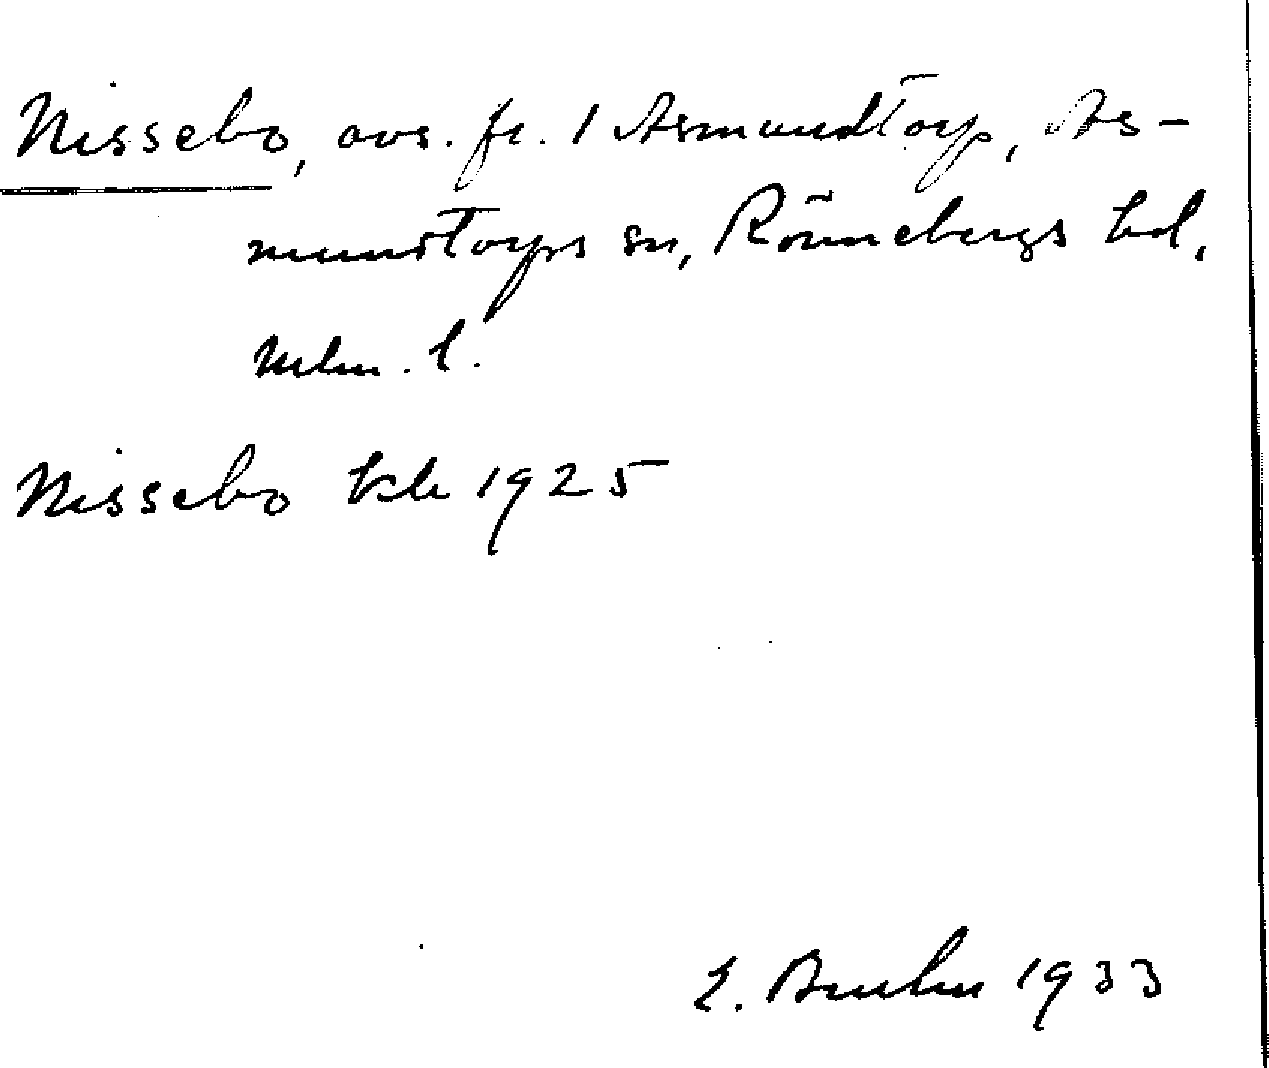 Nissebo, avs. fr. 1 Asmundtorp, As-
mundtorps sn, Rönnebergs hd,
Mlm. l.
Nissebo kbr 1925
1933